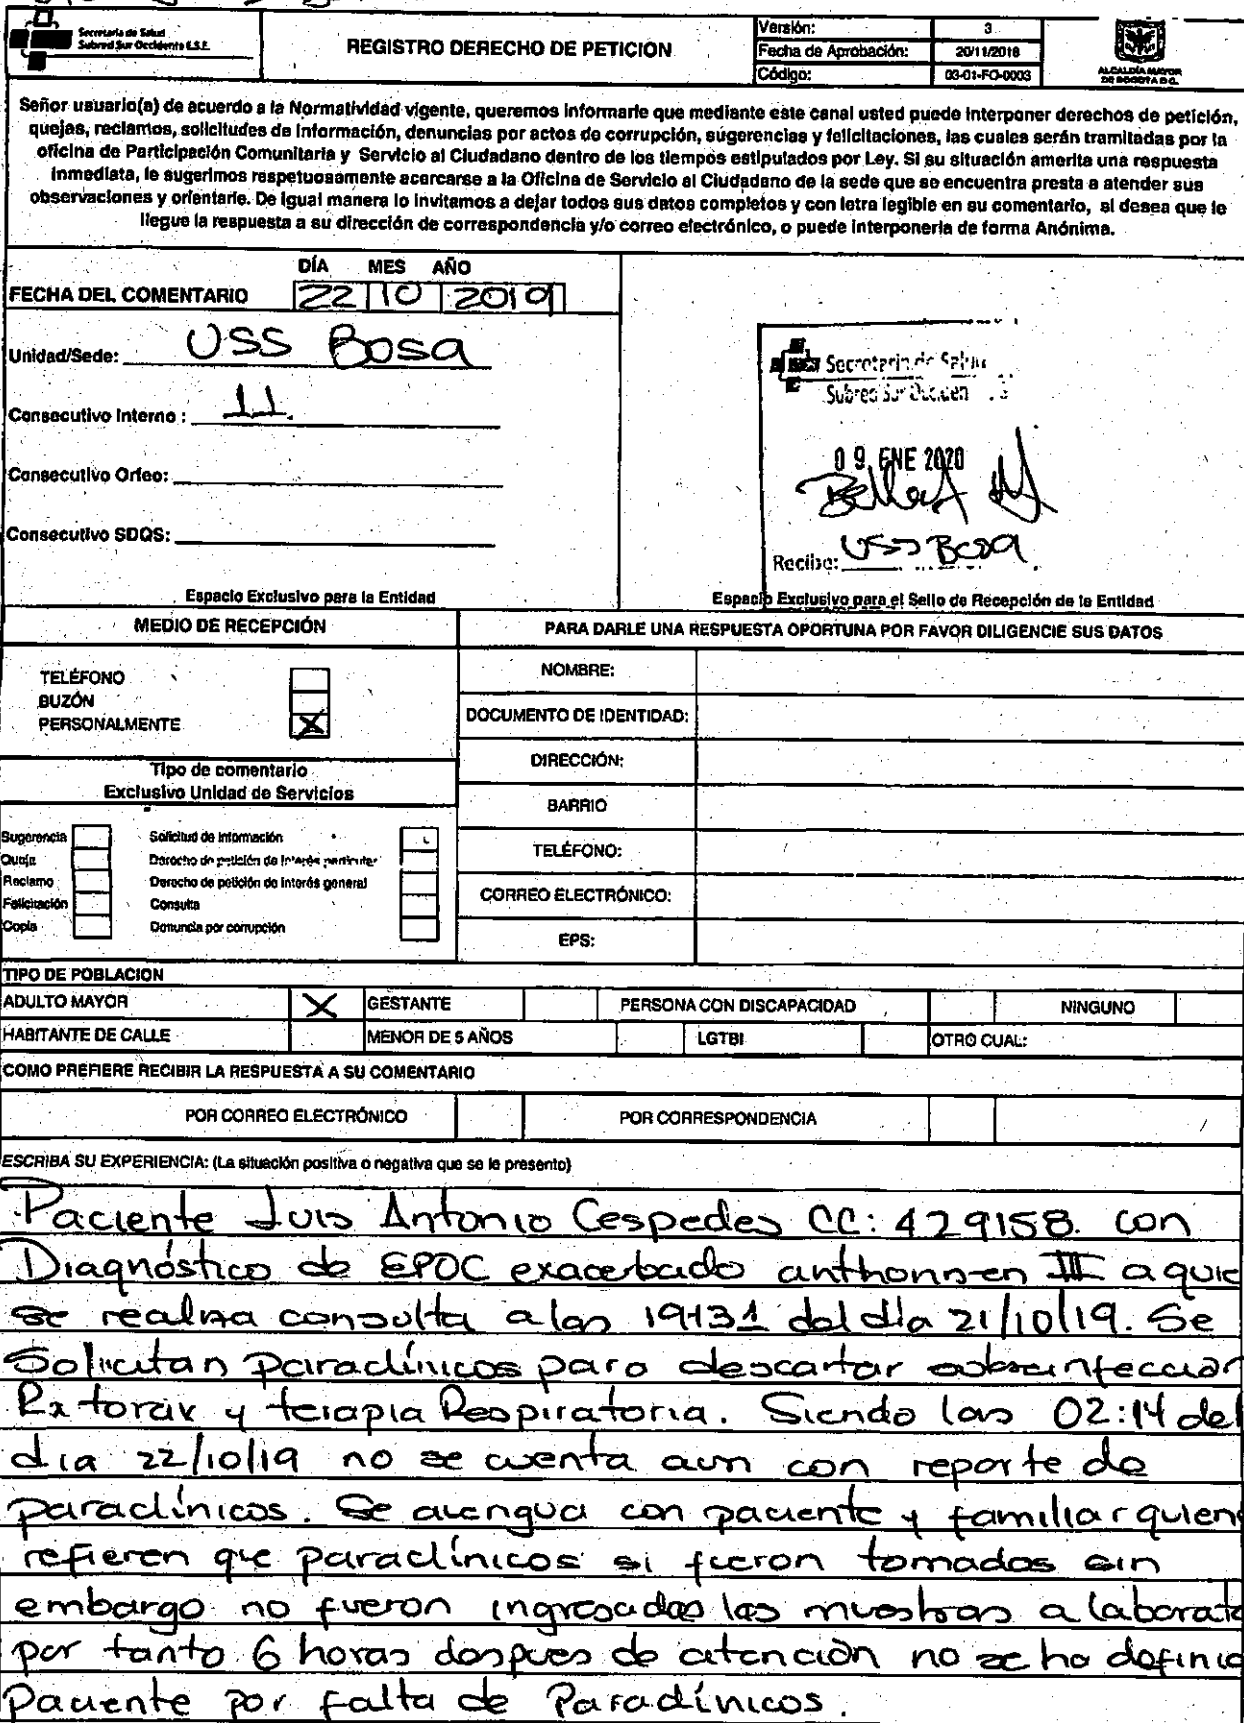 Secretaría de Salud
Subred Sur Occidente E.S.E.
REGISTRO DERECHO DE PETICION
Versión: 3
Fecha de Aprobación: 20/11/2018
Código: 03-01-FO-0003
ALCALDÍA MAYOR
DE BOGOTÁ D.C.
Señor usuario(a) de acuerdo a la Normatividad vigente, queremos informarle que mediante este canal usted puede interponer derechos de petición,
quejas, reclamos, solicitudes de información, denuncias por actos de corrupción, sugerencias y felicitaciones, las cuales serán tramitadas por la
oficina de Participación Comunitaria y Servicio al Ciudadano dentro de los tiempos estipulados por Ley. Si su situación amerita una respuesta
inmediata, le sugerimos respetuosamente acercarse a la Oficina de Servicio al Ciudadano de la sede que se encuentra presta a atender sus
observaciones y orientarle. De igual manera lo invitamos a dejar todos sus datos completos y con letra legible en su comentario, si desea que le
llegue la respuesta a su dirección de correspondencia y/o correo electrónico, o puede interponerla de forma Anónima.
DÍA MES AÑO
FECHA DEL COMENTARIO 22 10 2019
Unidad/Sede: USS Bosa
Consecutivo Interno : 11.
Consecutivo Orfeo:
Consecutivo SDQS:
Espacio Exclusivo para la Entidad
Secretaria de Salud
Subred Sur Occiden
09 ENE 2020
Recibe: USS Bosa
Espacio Exclusivo para el Sello de Recepción de la Entidad
MEDIO DE RECEPCIÓN
TELÉFONO
BUZÓN
PERSONALMENTE X
Tipo de comentario
Exclusivo Unidad de Servicios
Sugerencia Solicitud de información
Queja Derecho de petición de interés particular
Reclamo Derecho de petición de interés general
Felicitación Consulta
Copia Denuncia por corrupción
PARA DARLE UNA RESPUESTA OPORTUNA POR FAVOR DILIGENCIE SUS DATOS
NOMBRE:
DOCUMENTO DE IDENTIDAD:
DIRECCIÓN:
BARRIO
TELÉFONO:
CORREO ELECTRÓNICO:
EPS:
TIPO DE POBLACION
ADULTO MAYOR X GESTANTE PERSONA CON DISCAPACIDAD NINGUNO
HABITANTE DE CALLE MENOR DE 5 AÑOS LGTBI OTRO CUAL:
COMO PREFIERE RECIBIR LA RESPUESTA A SU COMENTARIO
POR CORREO ELECTRÓNICO POR CORRESPONDENCIA
ESCRIBA SU EXPERIENCIA: (La situación positiva o negativa que se le presento)
Paciente Luis Antonio Cespedes CC: 429158. con
Diagnóstico de EPOC exacerbado anthonnsen III a quie
se realiza consulta a las 19:31 del día 21/10/19. Se
Solicitan paraclínicos para descartar sobreinfección
Rx torax y terapia Respiratoria. Siendo las 02:14 del
día 22/10/19 no se cuenta aun con reporte de
paraclínicos. Se averigua con paciente y familiar quien
refieren que paraclínicos si fueron tomados sin
embargo no fueron ingresadas las muestras a laborato
por tanto 6 horas despues de atención no se ha definid
Paciente por falta de Paraclínicos.